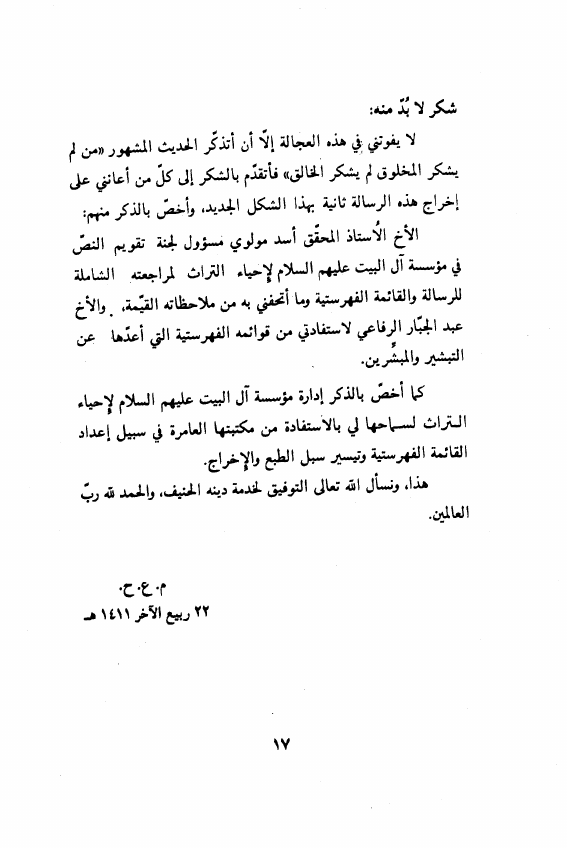 شكر لا بُدّ منه:
لا يفوتني في هذه العجالة إلّا أن أتذكّر الحديث المشهور «من لم
يشكر المخلوق لم يشكر الخالق» فأتقدّم بالشكر إلى كلّ من أعانني على
إخراج هذه الرسالة ثانية بهذا الشكل الجديد، وأخصّ بالذكر منهم:
الأخ الأُستاذ المحقّق أسد مولوي مسؤول لجنة تقويم النصّ
في مؤسسة آل البيت عليهم السلام لإحياء التراث لمراجعته الشاملة
للرسالة والقائمة الفهرستية وما أتحفني به من ملاحظاته القيّمة، والأخ
عبد الجبّار الرفاعي لاستفادتي من قوائمه الفهرستية التي أعدّها عن
التبشير والمبشِّرين.
كما أخصّ بالذكر إدارة مؤسسة آل البيت عليهم السلام لإحياء
التراث لسماحها لي بالاستفادة من مكتبتها العامرة في سبيل إعداد
القائمة الفهرستية وتيسير سبل الطبع والإخراج.
هذا، ونسأل الله تعالى التوفيق لخدمة دينه الحنيف، والحمد لله ربّ
العالمين.
م. ع. ح.
٢٢ ربيع الآخر ١٤١١ هـ
١٧